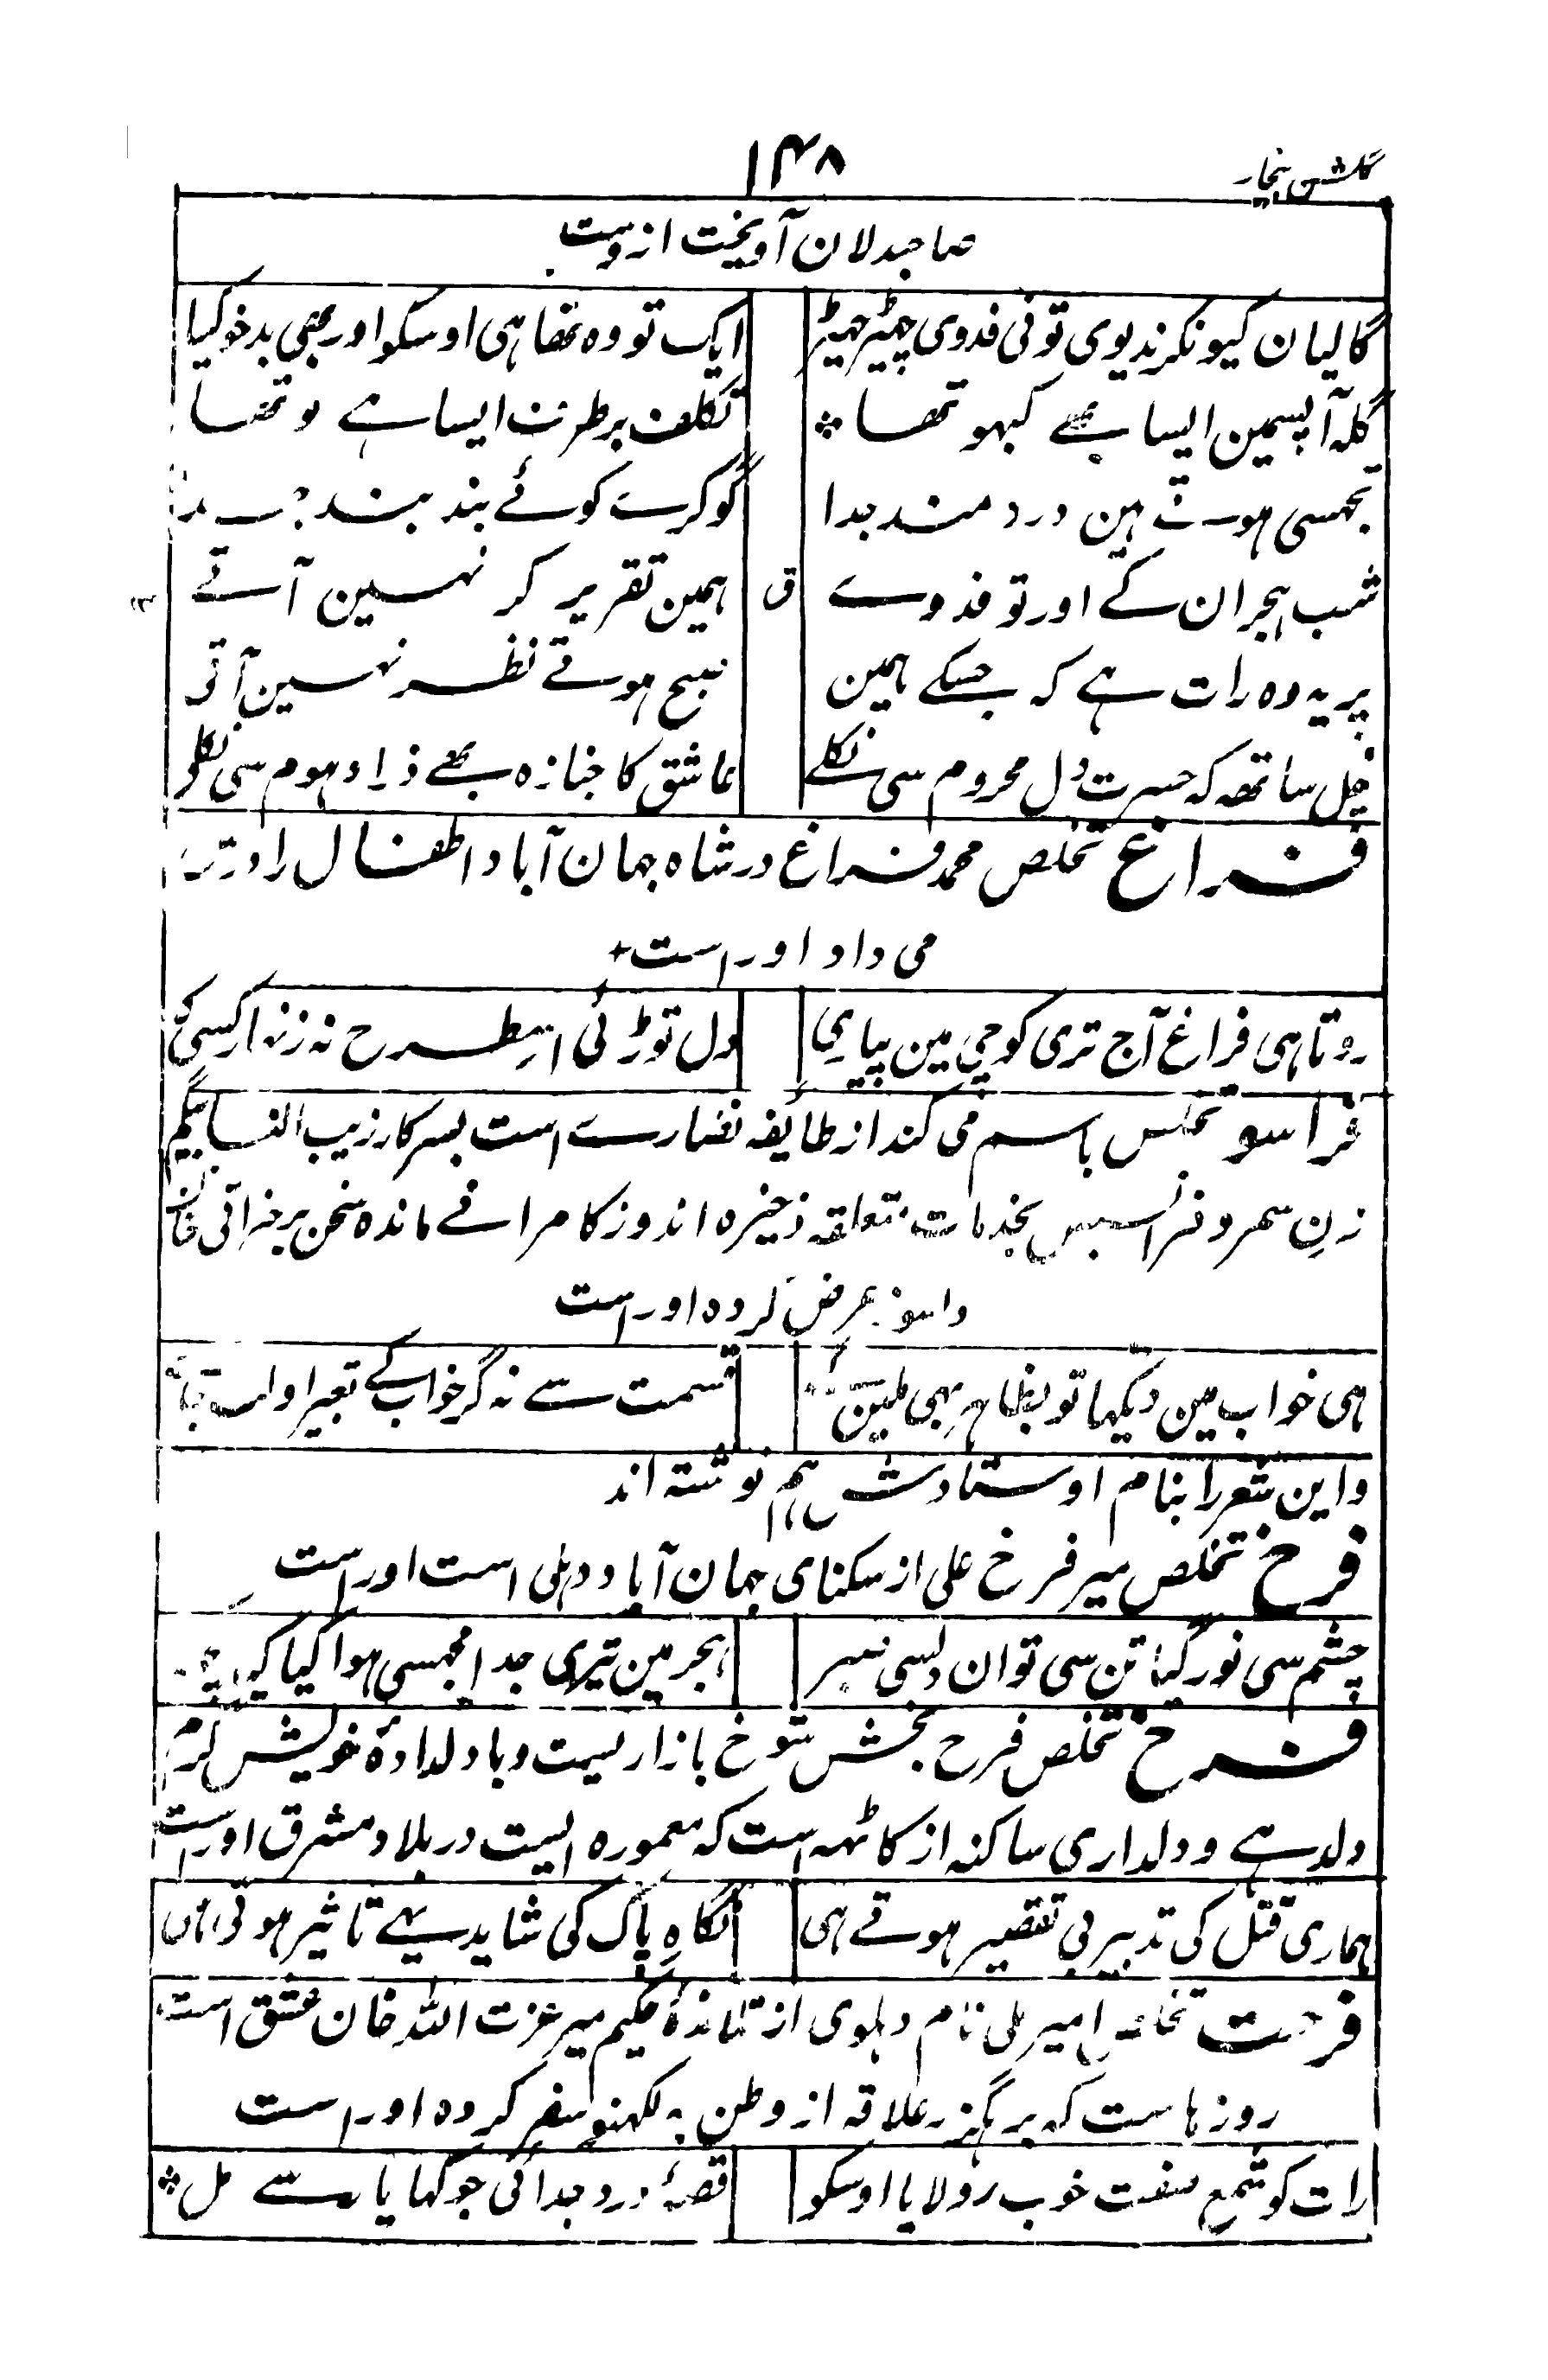 گلشن بیخار
۱۴۸
صاحبدلان آویخت ازوست
گالیان کیونکر ندیوی تونی فدوی چهیڑ چهیڑ ایک تو وه تھا هی اوسکو اور بھی بدخو کیا
گله آپسمین ایسا ہے کبهو تھا تکلف برطرف ایسا ہے تو تھا
تجهسی ہوتے ہین دردمند جدا گو کرے کوئے بند بند جدا
شب ہجران کے اور تو فدوے ق ہمین تقریر کر نہین آتے
پر یہ وہ رات ہے کہ جسکے ہمین صبح ہوتے نظر نہین آتی
چل ساتھ کہ حسرت دل محروم سی نکلے عاشق کا جنازہ ہے ذرا دہوم سی نکلے
فراغ تخلص محمد فراغ در شاہ جہان آباد اطفال را درس
می داد اوراست
روتا ہی فراغ آج تری کوچی مین پیاری دل توڑئی اسطرح نہ زنہار کسی کی
فراسو تخلص باسم می کند از طایفہ نصارے است بسرکار زیب النسا بیگم
زن سمرو فراسیس بخدمات متعلقہ ذخیرہ اندوز کامرانے ماندہ سخن بر خیراتی خان
دلسوز عرض کردہ اوراست
ہی خواب مین دیکہا تو بظاہر بہی ملین گے قسمت سے نہ گر خواب کے تعبیر اولٹ جائے
واین شعر را بنام اوستادش ہم نوشتہ اند
فرخ تخلص میر فرخ علی از سکنای جہان آباد دہلی است اوراست
چشم سی نور گیا تن سی توان دلسی صبر ہجر مین تیری جدا مجہسی ہوا کیا کیا
فرح تخلص فرح بخش شوخ بازاریست و با دلدادۂ خویش گرم
ولدہے و دلداری ساکنہ از کاٹهہ است کہ معمورہ ایست در بلاد مشرق اوراست
ہماری قتل کی تدبیر بی تقصیر ہوتے ہی نگاہ پاک کی شاید یہے تاثیر ہوتی ہی
فرحت تخلص امیر علی نام دہلوی از تلامذۂ حکیم میر عزت اللہ خان عشق است
روزہاست کہ بر علاقہ از وطن بہ لکہنو سفر کردہ اوراست
رات کو شمع صفت خوب رولایا اوسکو قصۂ درد جدائی جو کہا یار سے مل